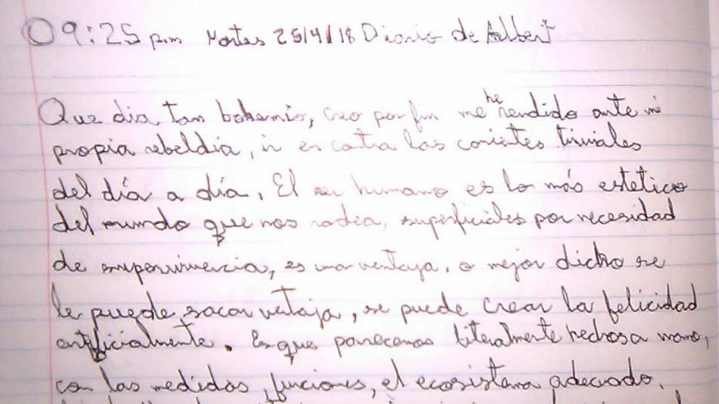 09:25 p.m Martes 25/4/18 Diario de Aelbert
Que dia tan bohemio, creo por fin me he rendido ante mi
propia rebeldía, ir en contra las corientes triviales
del día a día. El ser humano es lo más estetico
del mundo que nos rodea, superficiales por necesidad
de supervivencia, es una ventaja, o mejor dicho se
le puede sacar ventaja, se puede crear la felicidad
artificialmente. Es que parecemos literalmente hechos a mano,
con las medidas, funciones, el ecosistema adecuado.